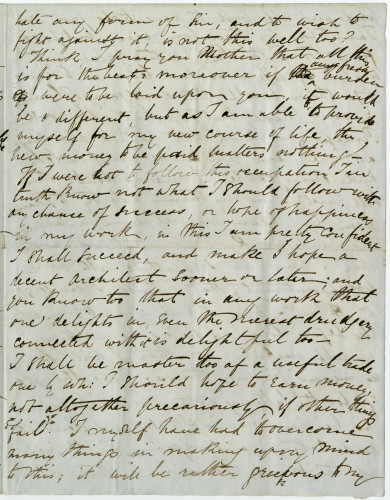 hate any form of Sin, and to wish to
fight against it, is not this well too?
Think I pray you Mother that all this
is for the best: moreover if any fresh burden
were to be laid upon you, it would
be different, but as I am able to provide
myself for my new course of life, the
new money to be paid matters nothing.
If I were not to follow this occupation I in
truth know not what I should follow with
any chance of success, or hope of happiness
in my work, in this I am pretty confident
I shall succeed, and make I hope a
decent architect sooner or later; and
you know too that in any work that
one delights in, even the merest drudgery
connected with it is delightful too
I shall be master too of a useful trade
one by wh: I should hope to earn money
not altogether precariously, if other things
fail. I myself have had to overcome
many things in making up my mind
to this; it will be rather grievous to my